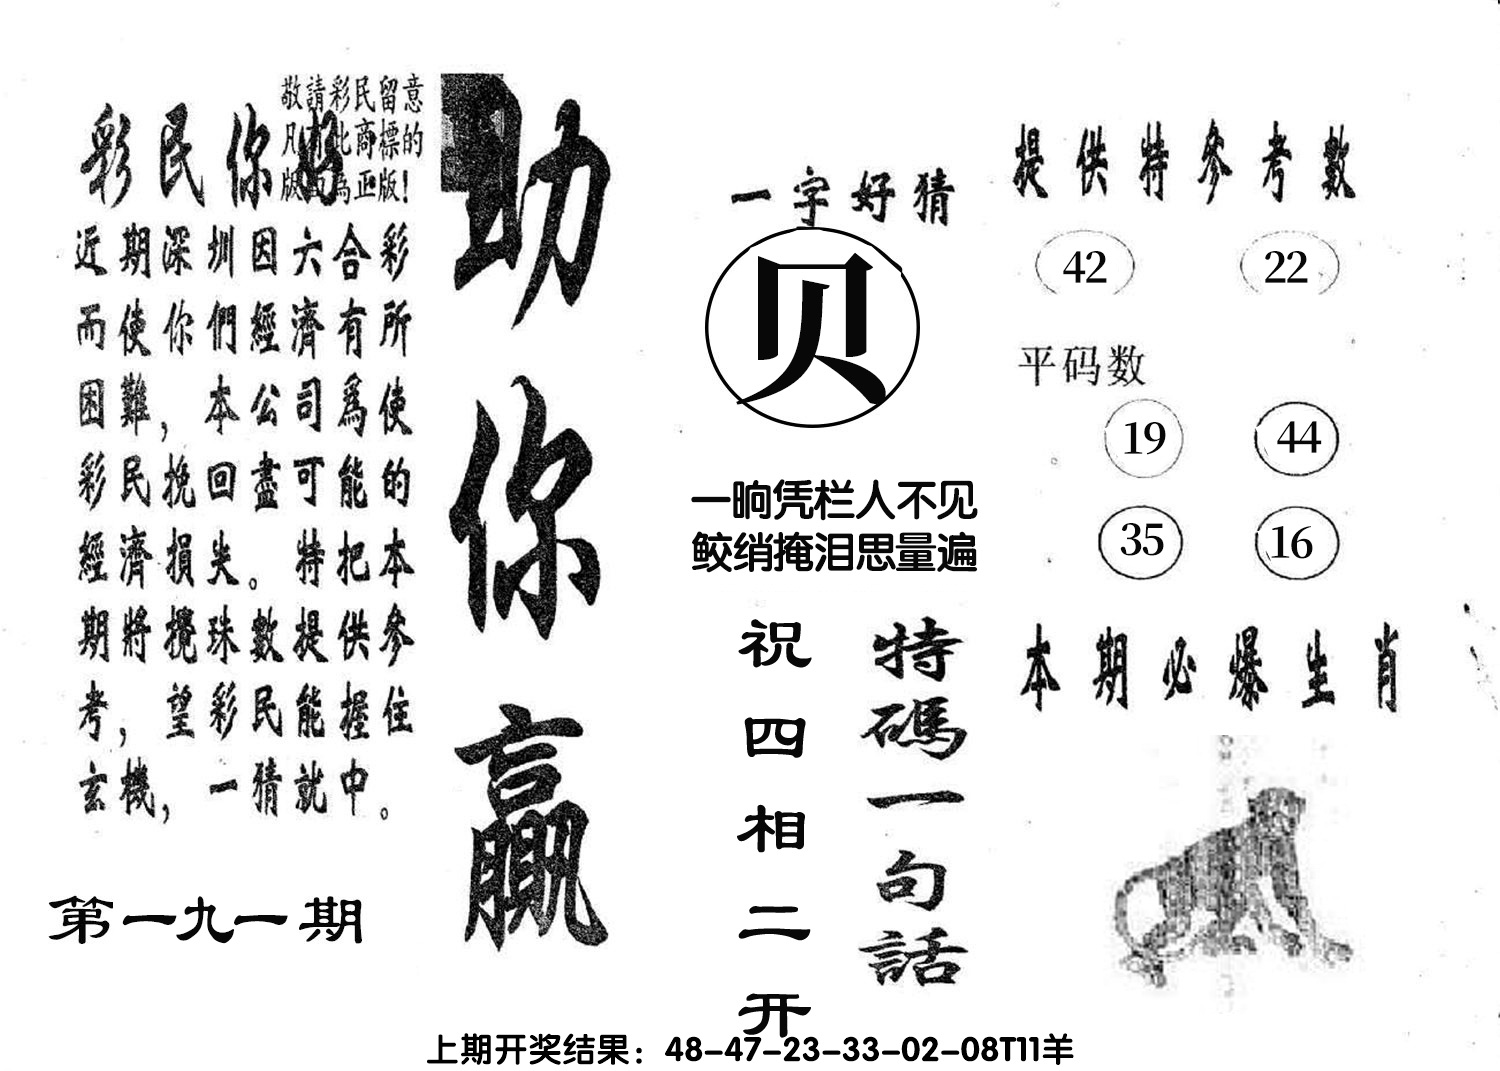 敬請彩民留意
凡有此商標的
版面為正版!
彩民你好
近期深圳因六合彩
而使你們經濟有所
困難，本公司爲使
彩民挽回盡可能的
經濟損失。特把本
期將攪珠數提供參
考，望彩民能握住
玄機，一猜就中。
第一九一期
助你贏
一字好猜
贝
一晌凭栏人不见
鲛绡掩泪思量遍
特碼一句話
祝四相二开
提供特參考數
42 22
平码数
19 44
35 16
本期必爆生肖
上期开奖结果：48-47-23-33-02-08T11羊